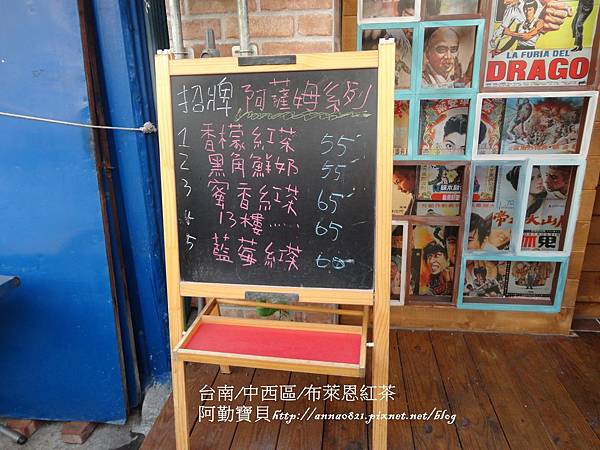 LA FURIA DEL
DRAGO
招牌 阿薩姆系列
1 香檬紅茶 55
2 黑角鮮奶 55
3 蜜香紅茶 65
4 13樓..... 65
5 藍莓紅茶 60
台南/中西區/布萊恩紅茶
阿勤寶貝http://anna0821.pixnet.net/blog